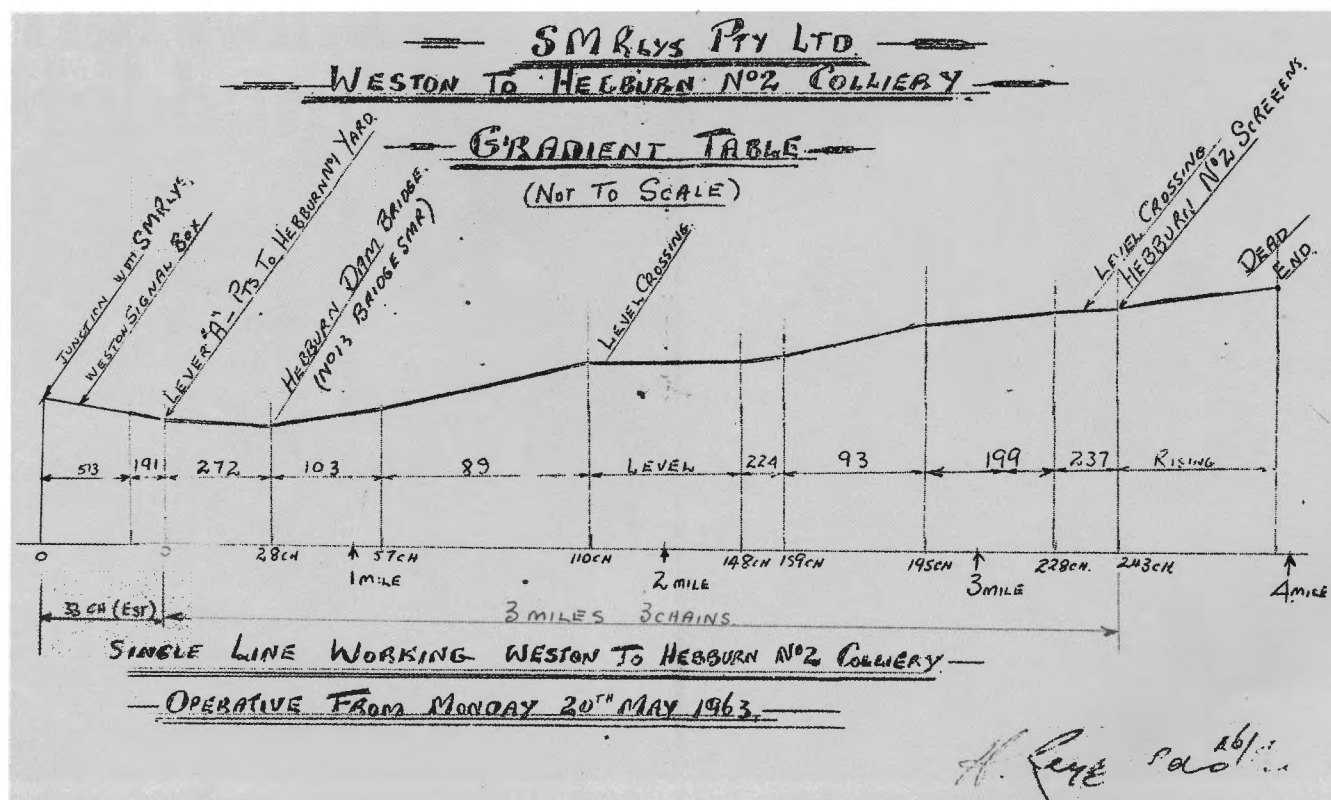 SMRLYS PTY LTD
WESTON TO HEBBURN Nº2 COLLIERY
GRADIENT TABLE
(NOT TO SCALE)
JUNCTION WITH SMRLYS.
WESTON SIGNAL BOX
LEVER "A" PTS TO HEBBURN Nº1 YARD.
HEBBURN DAM BRIDGE.
(Nº13 BRIDGE SMR)
LEVEL CROSSING.
LEVEL CROSSING
HEBBURN Nº2 SCREEENS.
DEAD END.
513 191 272 103 89 LEVEL 224 93 199 237 RISING
0 0 28CH 57CH 110CH 148CH 159CH 195CH 228CH. 243CH.
1 MILE 2 MILE 3 MILE 4 MILE
33 CH (EST) 3 MILES 3 CHAINS
SINGLE LINE WORKING WESTON TO HEBBURN Nº2 COLLIERY
OPERATIVE FROM MONDAY 20TH MAY 1963.